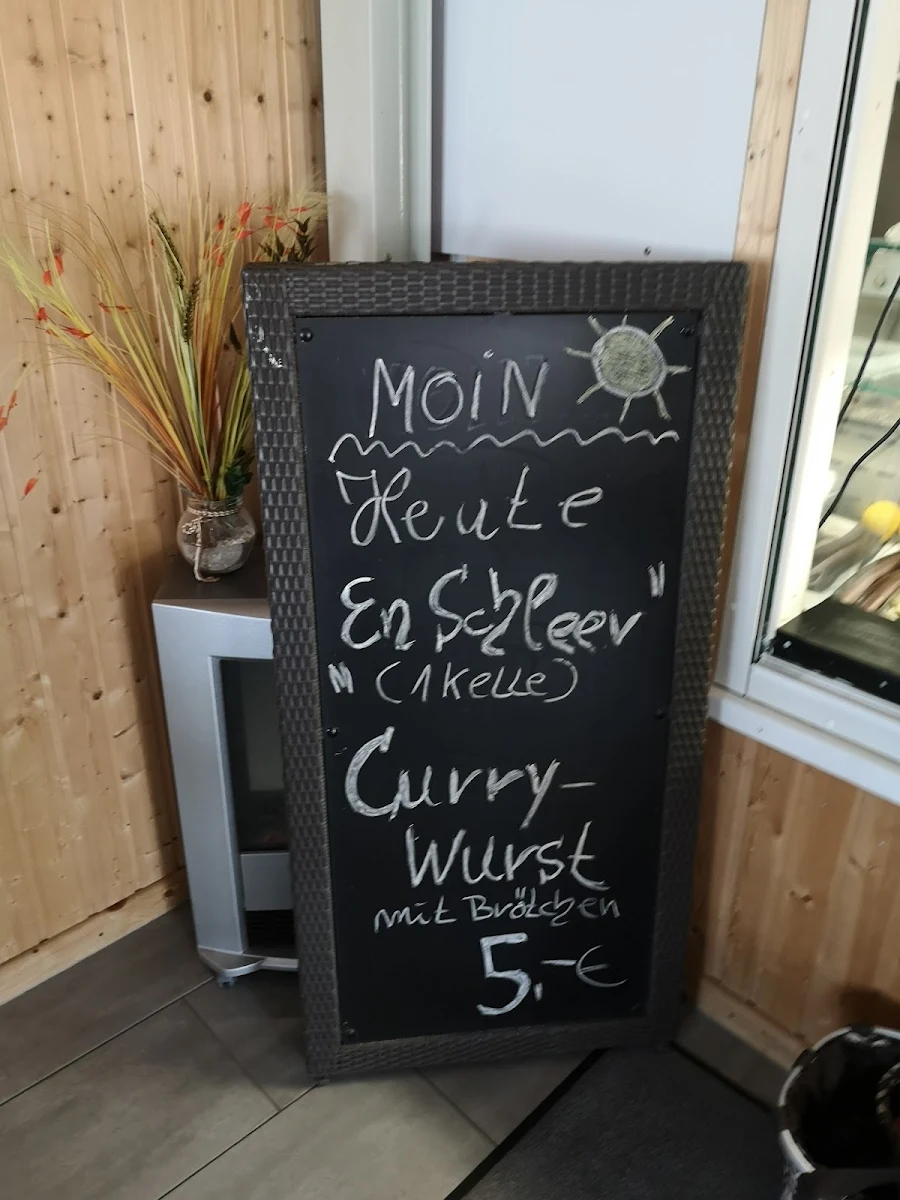 MOiN
Heute
En Schleev"
" (1 Kelle)
Curry-
Wurst
mit Brötchen
5,-€